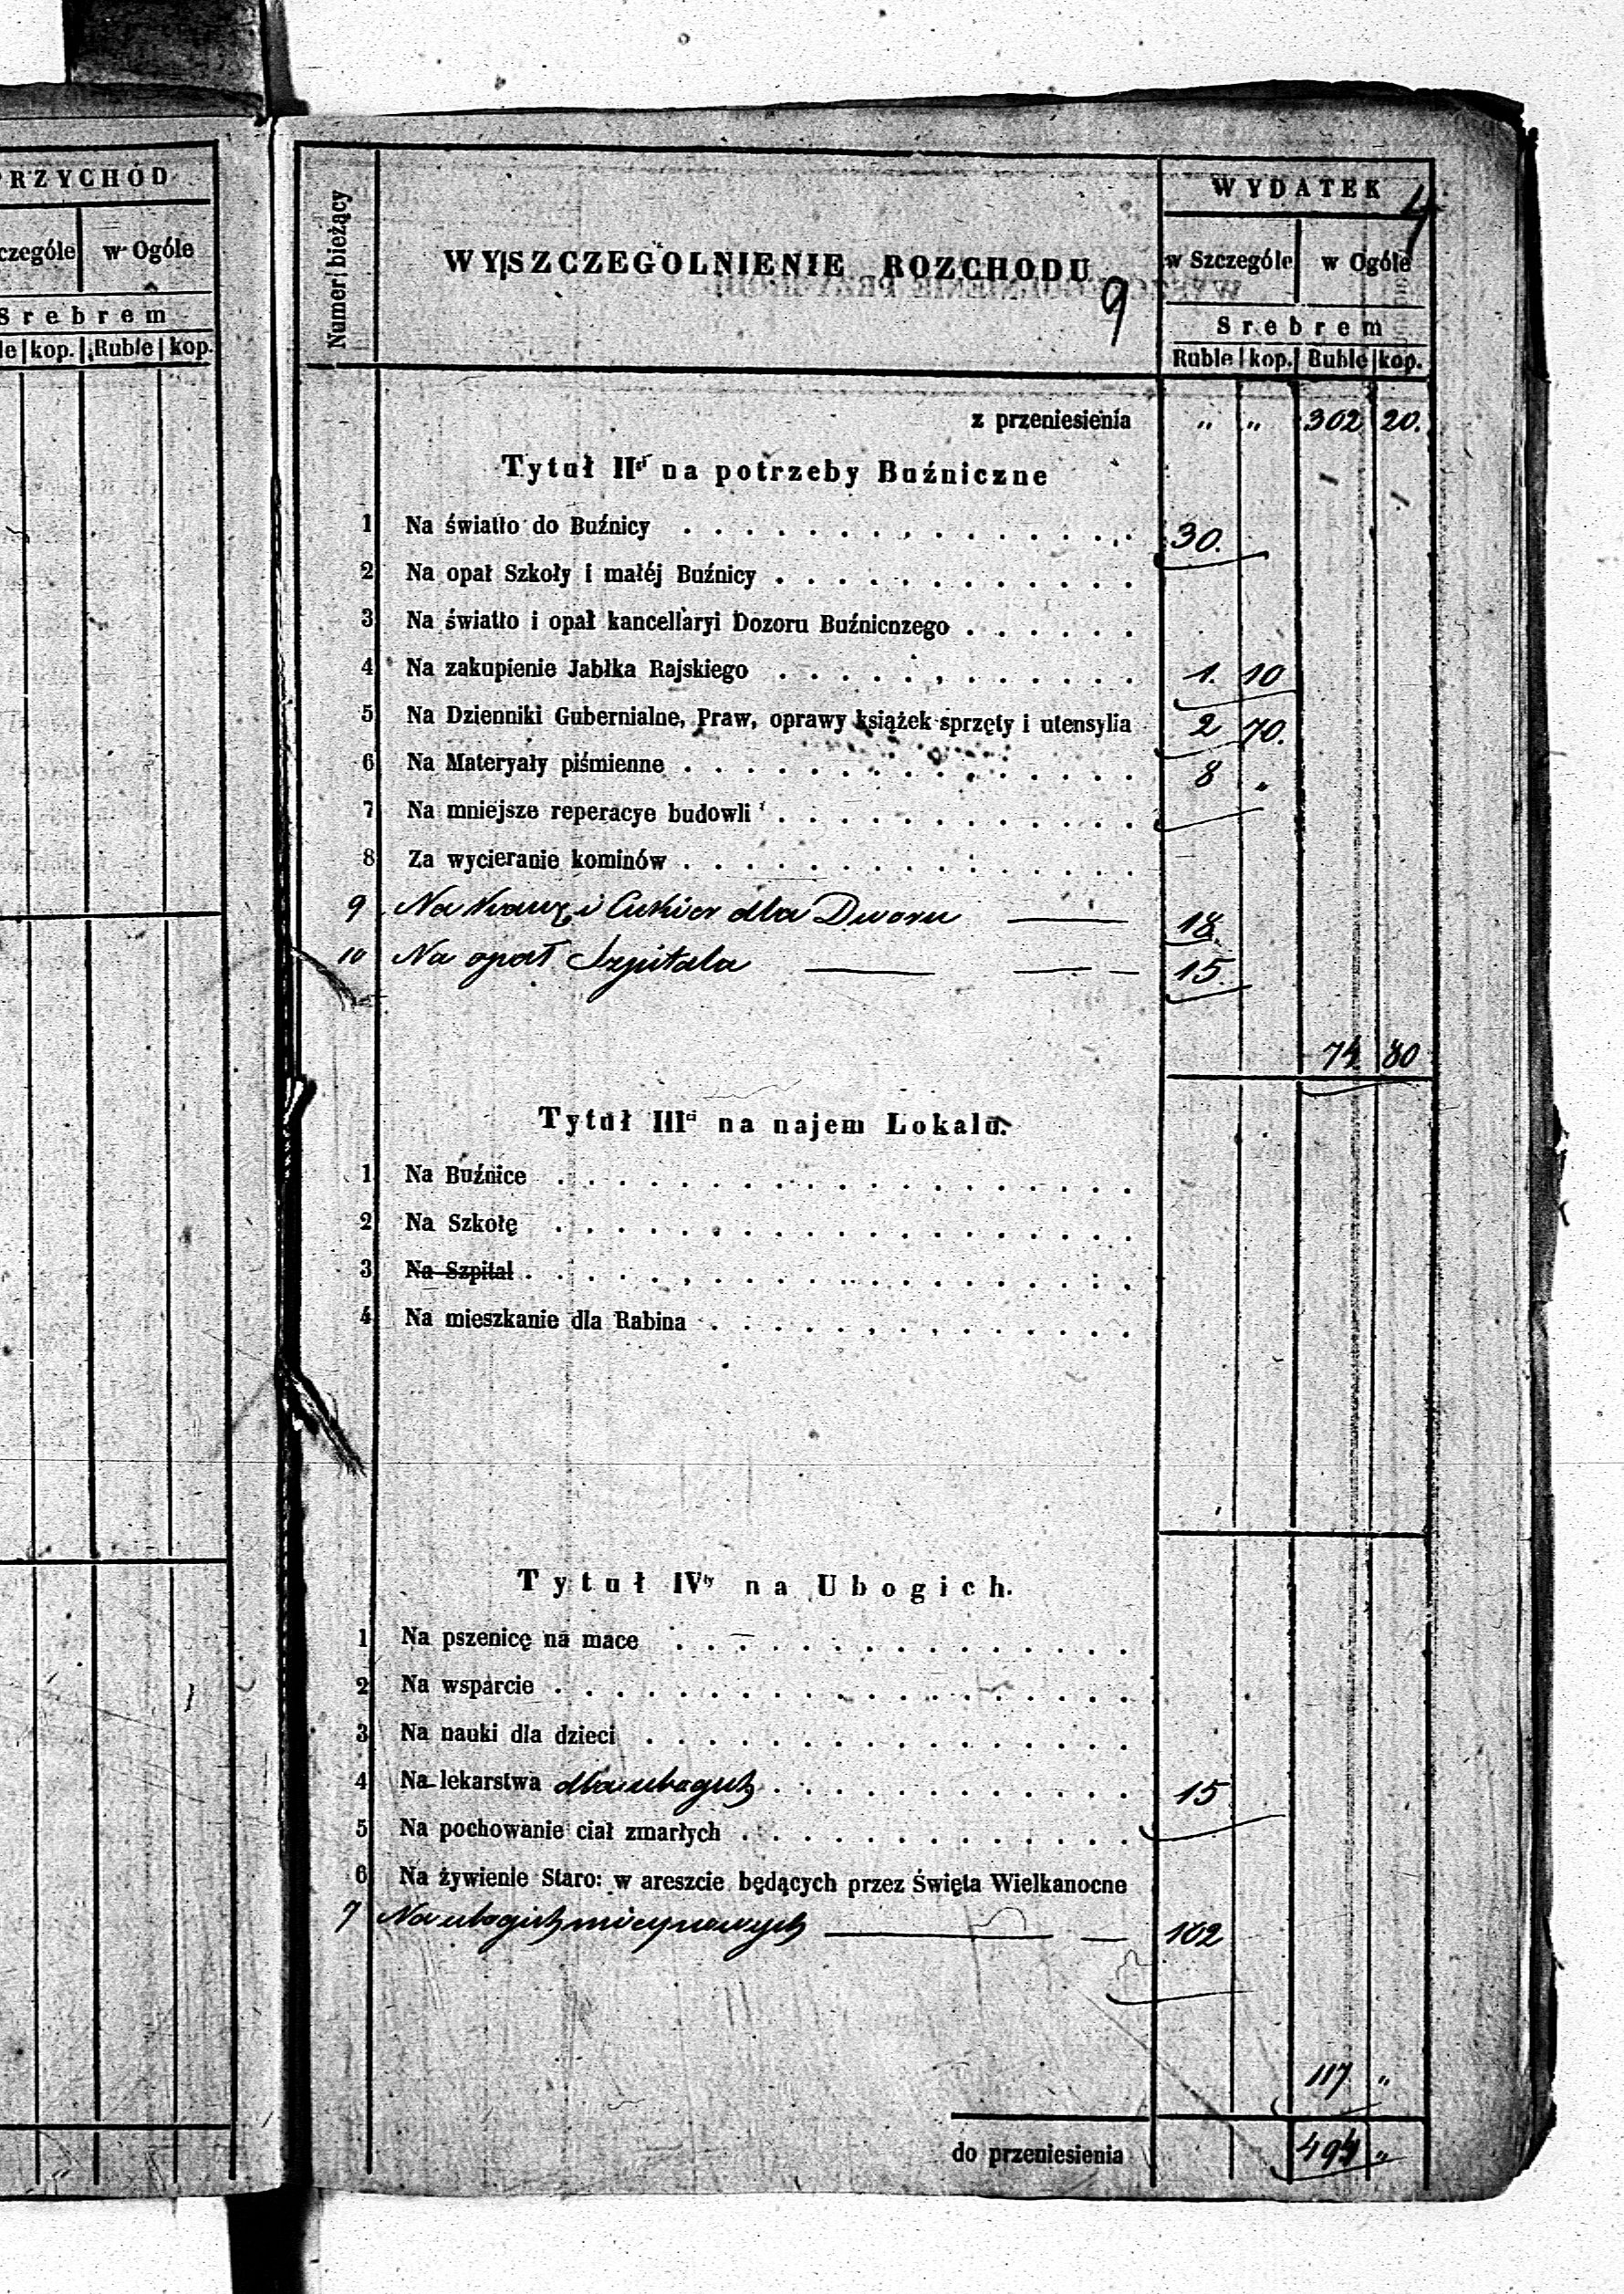 PRZYCHÓD
czególe w Ogóle
Srebrem
le kop. Ruble kop.
Numer bieżący
WYSZCZEGOLNIENIE ROZCHODU
9
WYDATEK
4
w Szczególe w Ogóle
Srebrem
Ruble kop. Ruble kop.
z przeniesienia „ „ 302 20.
Tytuł IIgi na potrzeby Buźniczne
1 Na światło do Buźnicy 30.
2 Na opał Szkoły i małéj Buźnicy
3 Na światło i opał kancellaryi Dozoru Buźnicnzego
4 Na zakupienie Jabłka Rajskiego 1. 10
5 Na Dzienniki Gubernialne, Praw, oprawy książek sprzęty i utensylia 2 70.
6 Na Materyały piśmienne 8 „
7 Na mniejsze reperacye budowli
8 Za wycieranie kominów
9 Na Kawę i Cukier dla Dworu 18.
10 Na opał Szpitala 15.
74. 80
Tytuł IIIci na najem Lokalu.
1 Na Buźnice
2 Na Szkołę
3 Na Szpital
4 Na mieszkanie dla Rabina
Tytuł IVty na Ubogich.
1 Na pszenicę na mace
2 Na wsparcie
3 Na nauki dla dzieci
4 Na lekarstwa dla ubogich 15
5 Na pochowanie ciał zmarłych
6 Na żywienie Staro: w areszcie będących przez Święta Wielkanocne
7 Na ubogich 102
117 „
do przeniesienia 494 „